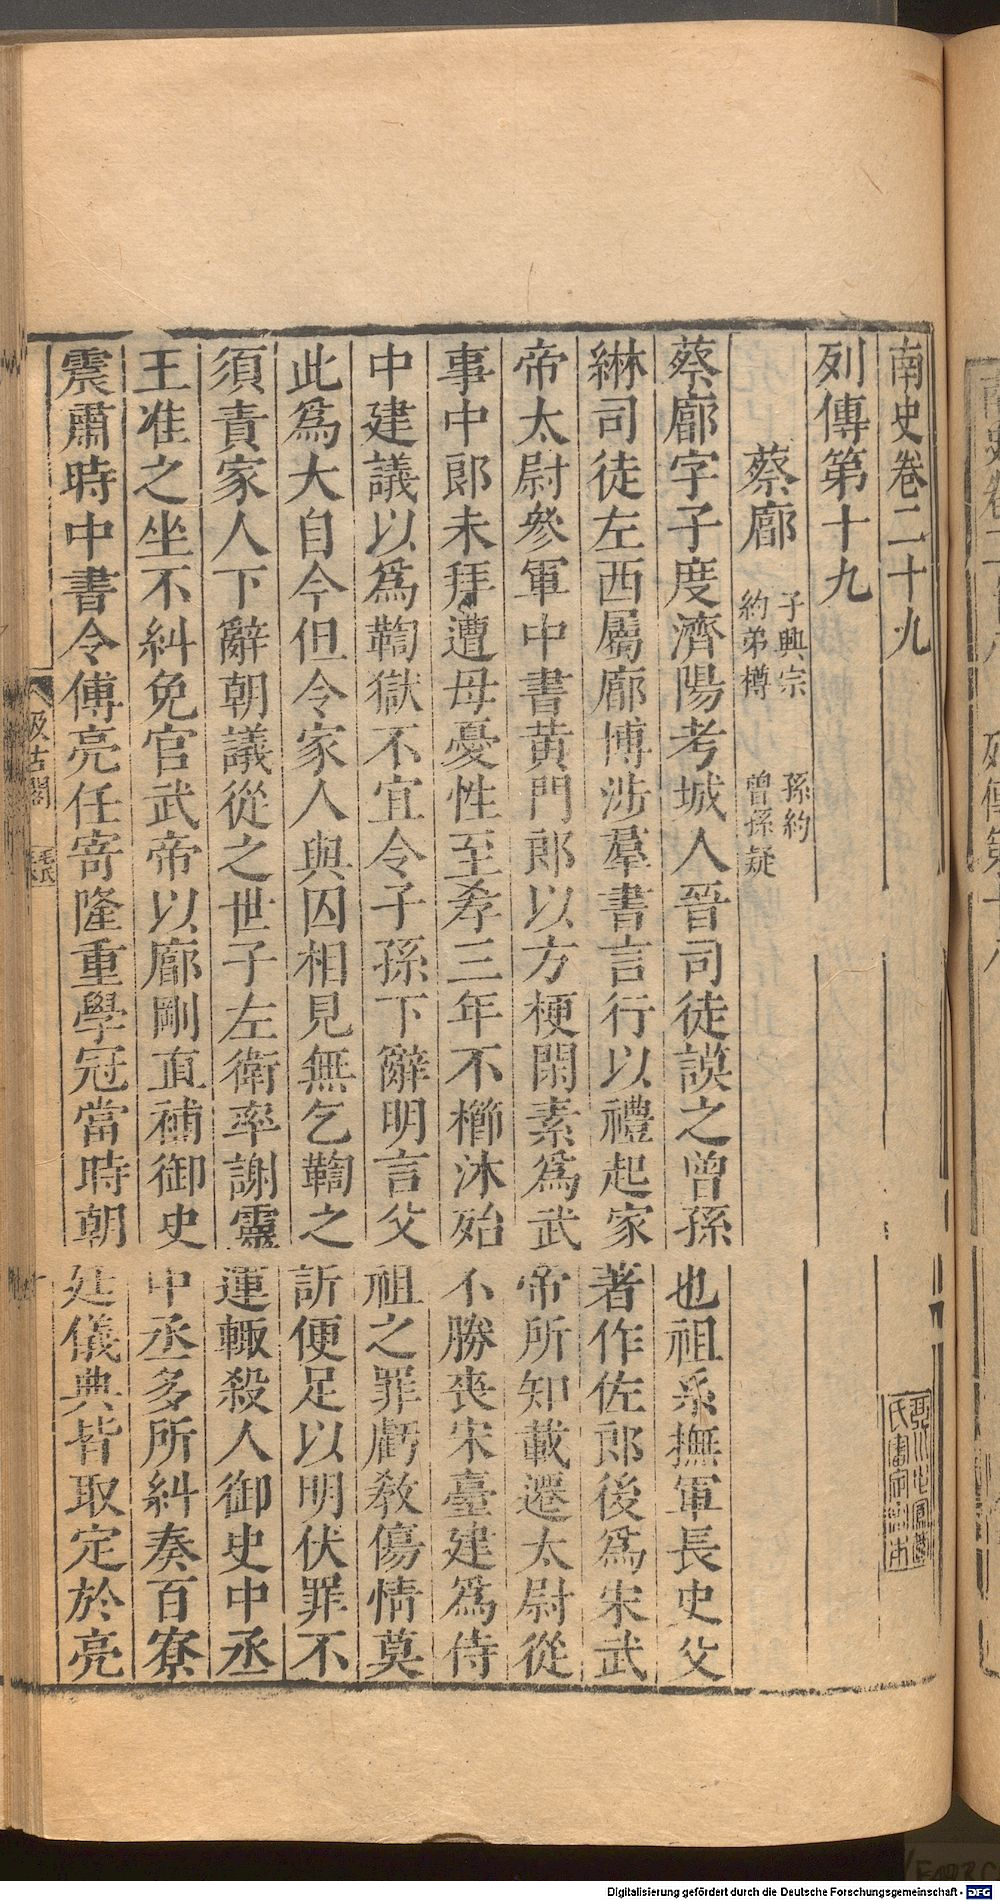 南史卷二十九
列傳第十九
蔡廓 子興宗 孫約
約弟樽 曾孫疑
蔡廓字子度濟陽考城人晉司徒謨之曾孫也祖系撫軍長史父
綝司徒左西屬廓博涉羣書言行以禮起家著作佐郎後爲宋武
帝太尉參軍中書黃門郎以方梗閑素爲武帝所知載遷太尉從
事中郎未拜遭母憂性至孝三年不櫛沐殆不勝喪宋臺建爲侍
中建議以爲鞫獄不宜令子孫下辭明言父祖之罪虧敎傷情莫
此爲大自今但令家人與囚相見無乞鞫之訴便足以明伏罪不
須責家人下辭朝議從之世子左衛率謝靈運輙殺人御史中丞
王准之坐不糾免官武帝以廓剛直補御史中丞多所糾奏百寮
震肅時中書令傅亮任寄隆重學冠當時朝廷儀典皆取定於亮
汲古閣
毛氏
列傳第十八
Digitalisierung gefördert durch die Deutsche Forschungsgemeinschaft - DFG